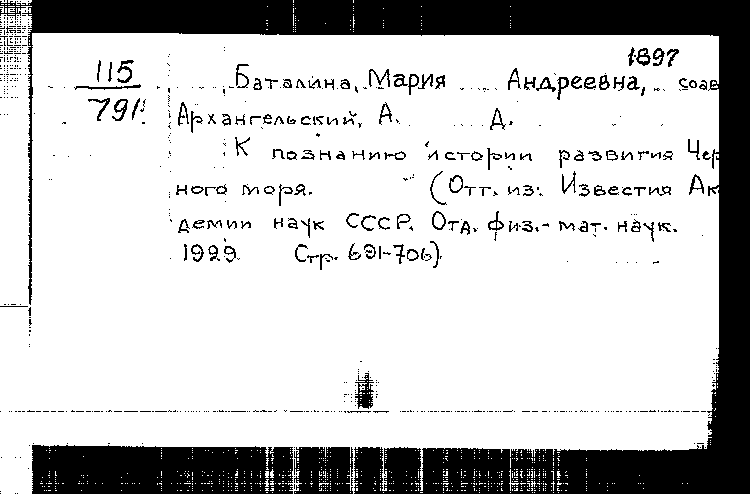 1897
115
791
Баталина, Мария Андреевна, соав
Архангельский, А. Д.
К познанию истории развития Чер
ного моря. (Отт. из: Известия Ак
демии наук СССР. Отд. физ.-мат. наук.
1929 Стр. 691-706).